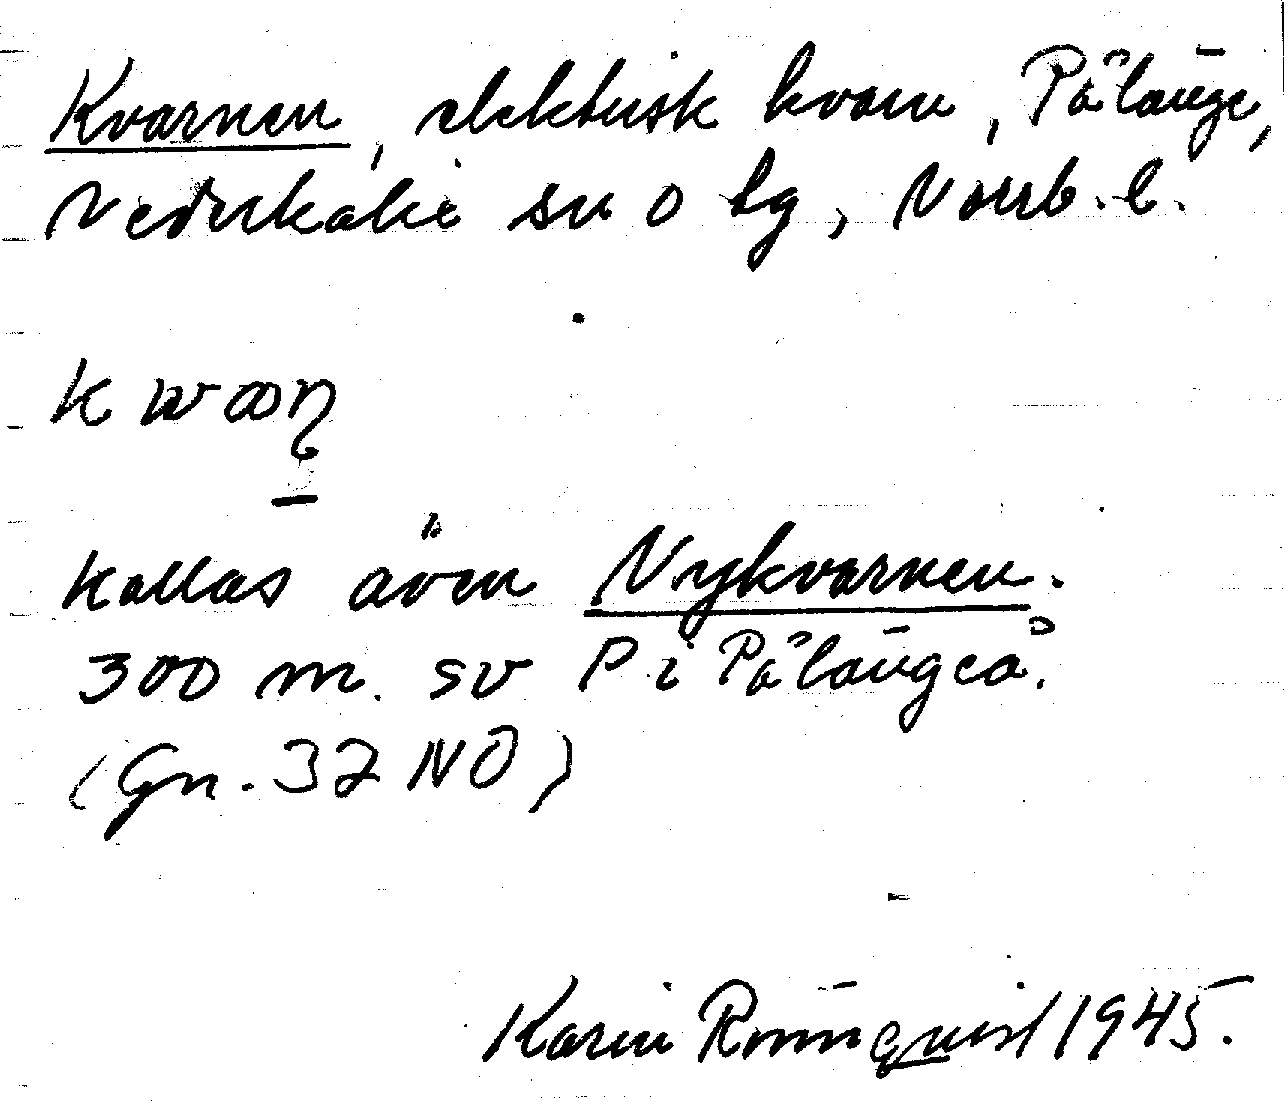 Kvarnen, elektrisk kvarn, Pålänge,
Nederkalix sn o tg, Norrb. l.
kwaaɳ
kallas även Nykvarnen.
300 m. sv P i Pålängeå.
(Gn. 32 NO)
Karin Rönnquist 1945.